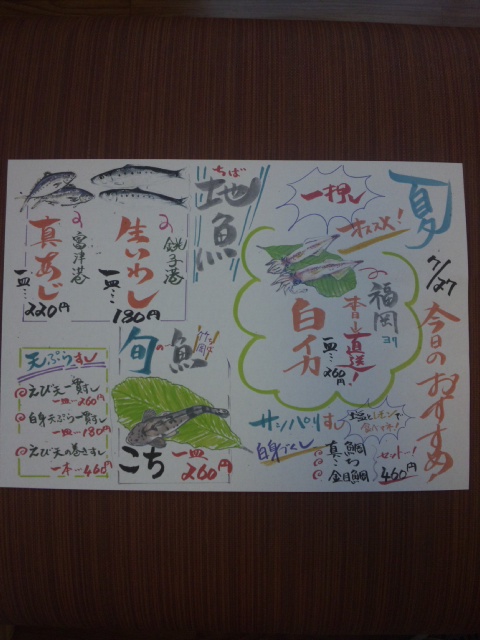 夏
7/27
今日のおすすめ
一押し
オススメ!
福岡
ヨリ
本日直送!
白イカ
一皿…260円
サッパリすし
塩とレモンで
食べてネ!
白身づくし
真鯛
こち
金目鯛
セット!
460円
ちば
地魚
銚子港の
生いわし
一皿…
180円
富津港の
真あじ
一皿…
220円
旬の魚
竹岡
こち
一皿
260円
天ぷらすし
えび天一貫すし
一皿…260円
白身天ぷら一貫すし
一皿…180円
えび天の巻きすし
一本…460円